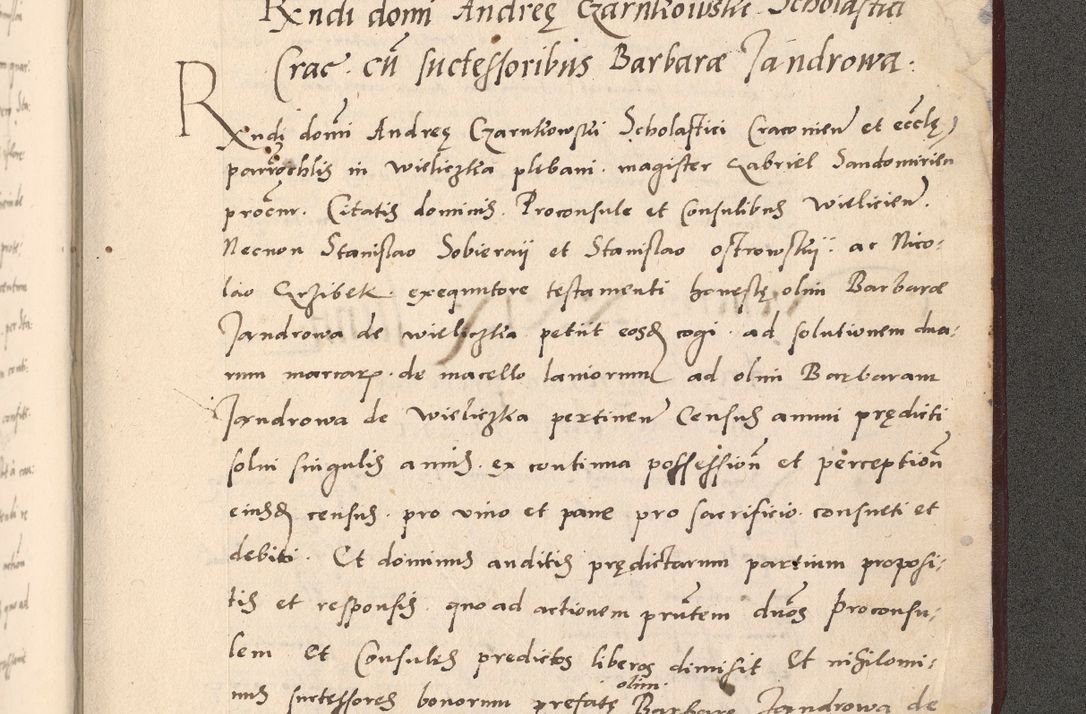 Rxndi domi Andreę Czarnkowski Scholastici
Crac. cũ successoribus Barbaræ Jandrowa.
Rxndi domĩ Andreę Czarnkowski Scholastici Craconieñ et ecclę
parrochlis in Wieliczka plebani. magister Gabriel Sandomirien
procur. Citatis dominis. Proconsule et Consulibus Wielicień.
Necnon Stanislao Sobieraij et Stanislao Ostrowskij. ac Nico:
lao Grzibek. exequutore testamenti honestę olim Barbaræ
Jandrowa de Wieliczka petiit eosdem cogi. ad solutionem dua:
rum marcarum. de macello laniorum ad olim Barbaram
Jandrowa de Wieliczka pertineñ Census annui prędicti
solui singulis annis. ex continua possessioñ et perceptioñ
eiusdem census. pro vino et pane pro sacrificio. consueti et
debiti. Et dominus auditis prędictarum partium proposi:
tis et responsis. quo ad actionem prñtem dños Proconsu:
lem Et Consules predictos liberos dimisit Et nihilomi:
nus successores bonorum prefatę olim Barbaræ Jandrowa de